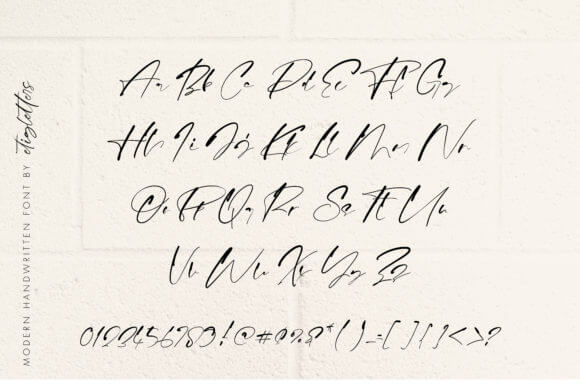 Aa Bb Cc Dd Ee Ff Gg
Hh Ii Jj Kk Ll Mm Nn
Oo Pp Qq Rr Ss Tt Uu
Vv Ww Xx Yy Zz
0123456789!@#%&*()-=[]{}<>?
MODERN HANDWRITTEN FONT BY